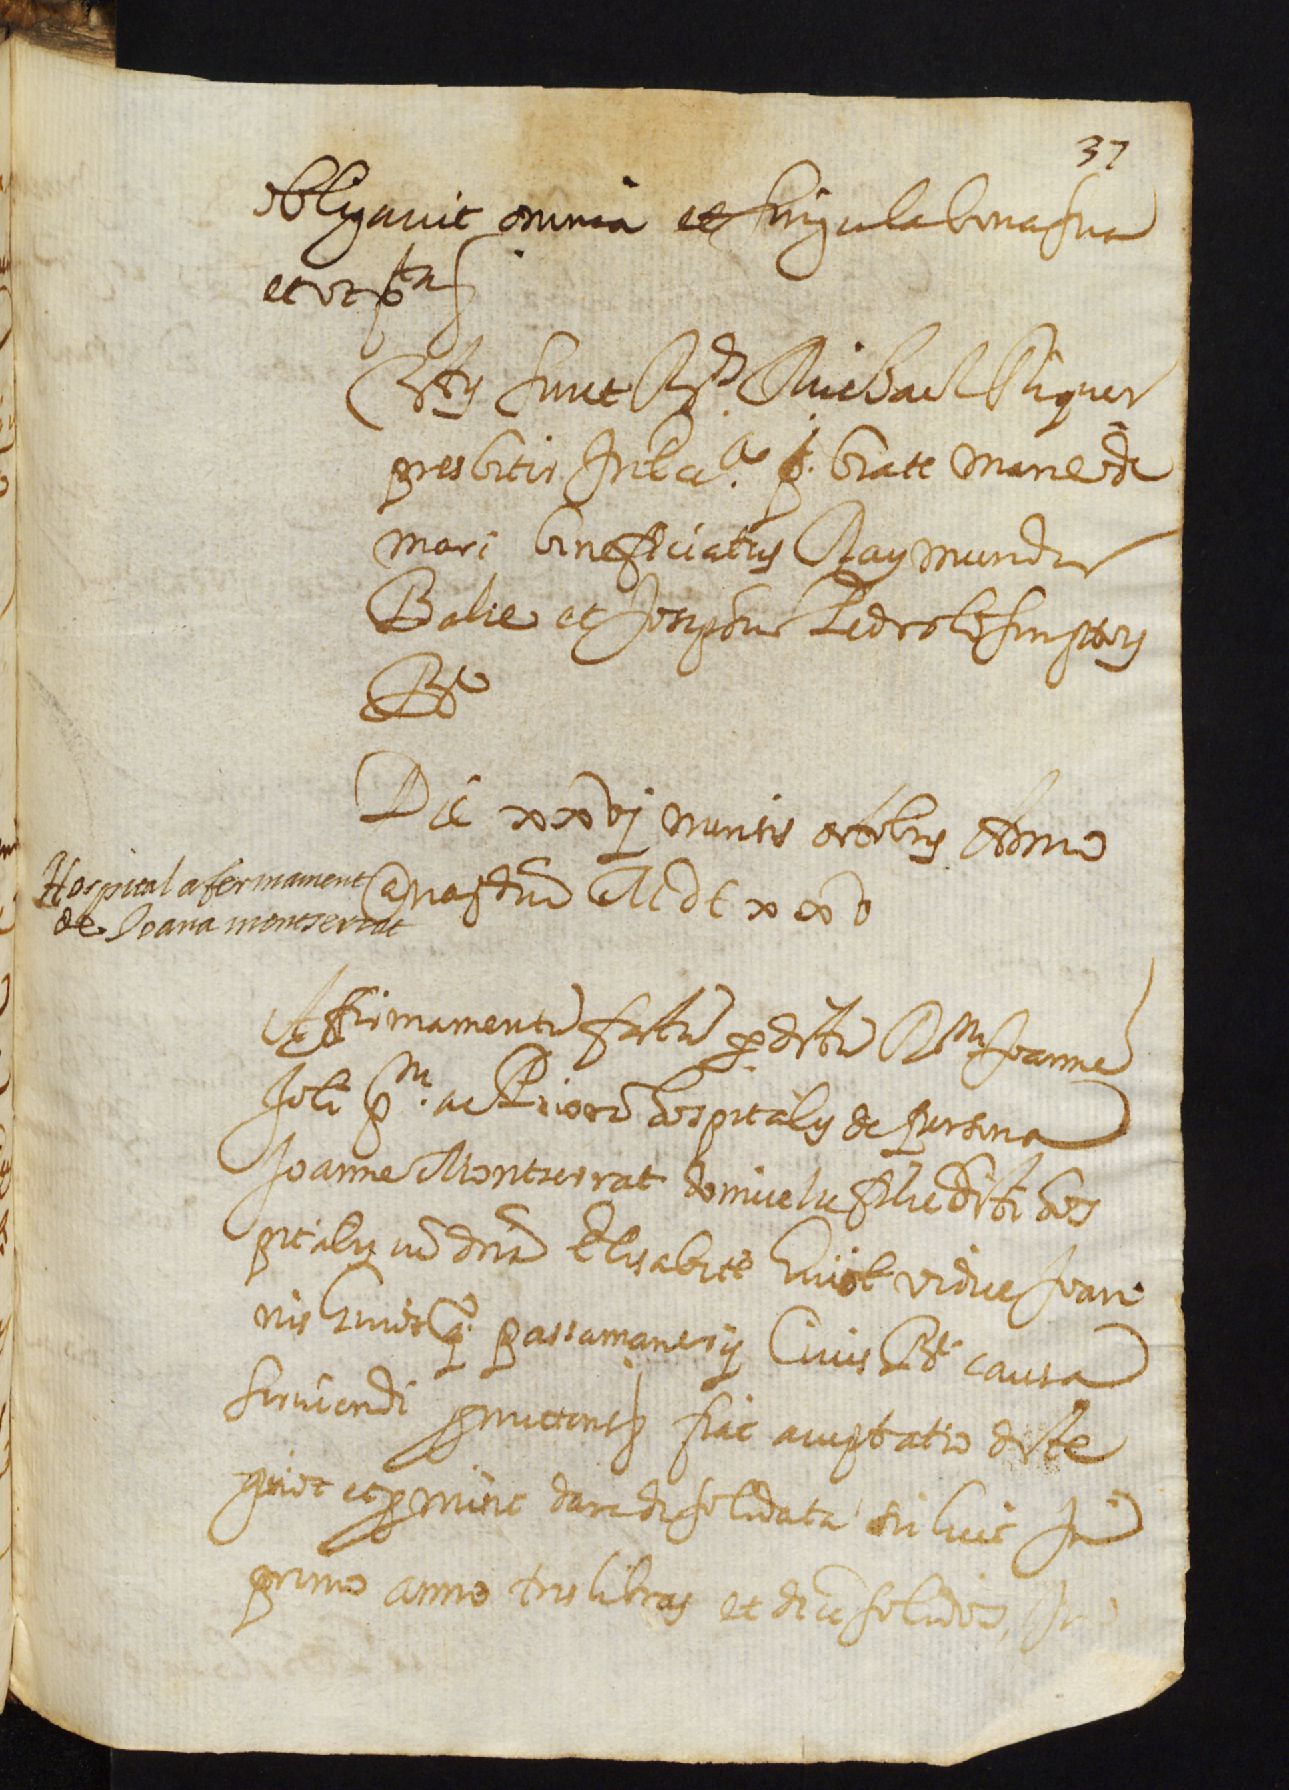 37
obligavit omnia et singula bona sua
et ut pta
Testes sunt Rds Michael Piquer
presbiter in Ecca. p. beate Marie de
mari beneficiatus Raymundus
Balle et Josephus Pedrol scriptores
Bar
Die xxvj mensis octobris Anno
a nate dni MDCxxv
Hospital afermament
de Joana montserrat
Affirmamentu factu per dictu Rm Joanne
Joli pm. ac Priore hospitalis de persona
Joanne Montserrat domicelle filie dicti hos
pitalis cu dna Elisabete Guiot vidue Joan
nis Guiot q. passamanerij Civis Bar causa
serviendi promittens fiat acceptatio dicte
guiot et promisit dare de soldata sibi licet In
primo anno tres libras et dece solidos, In